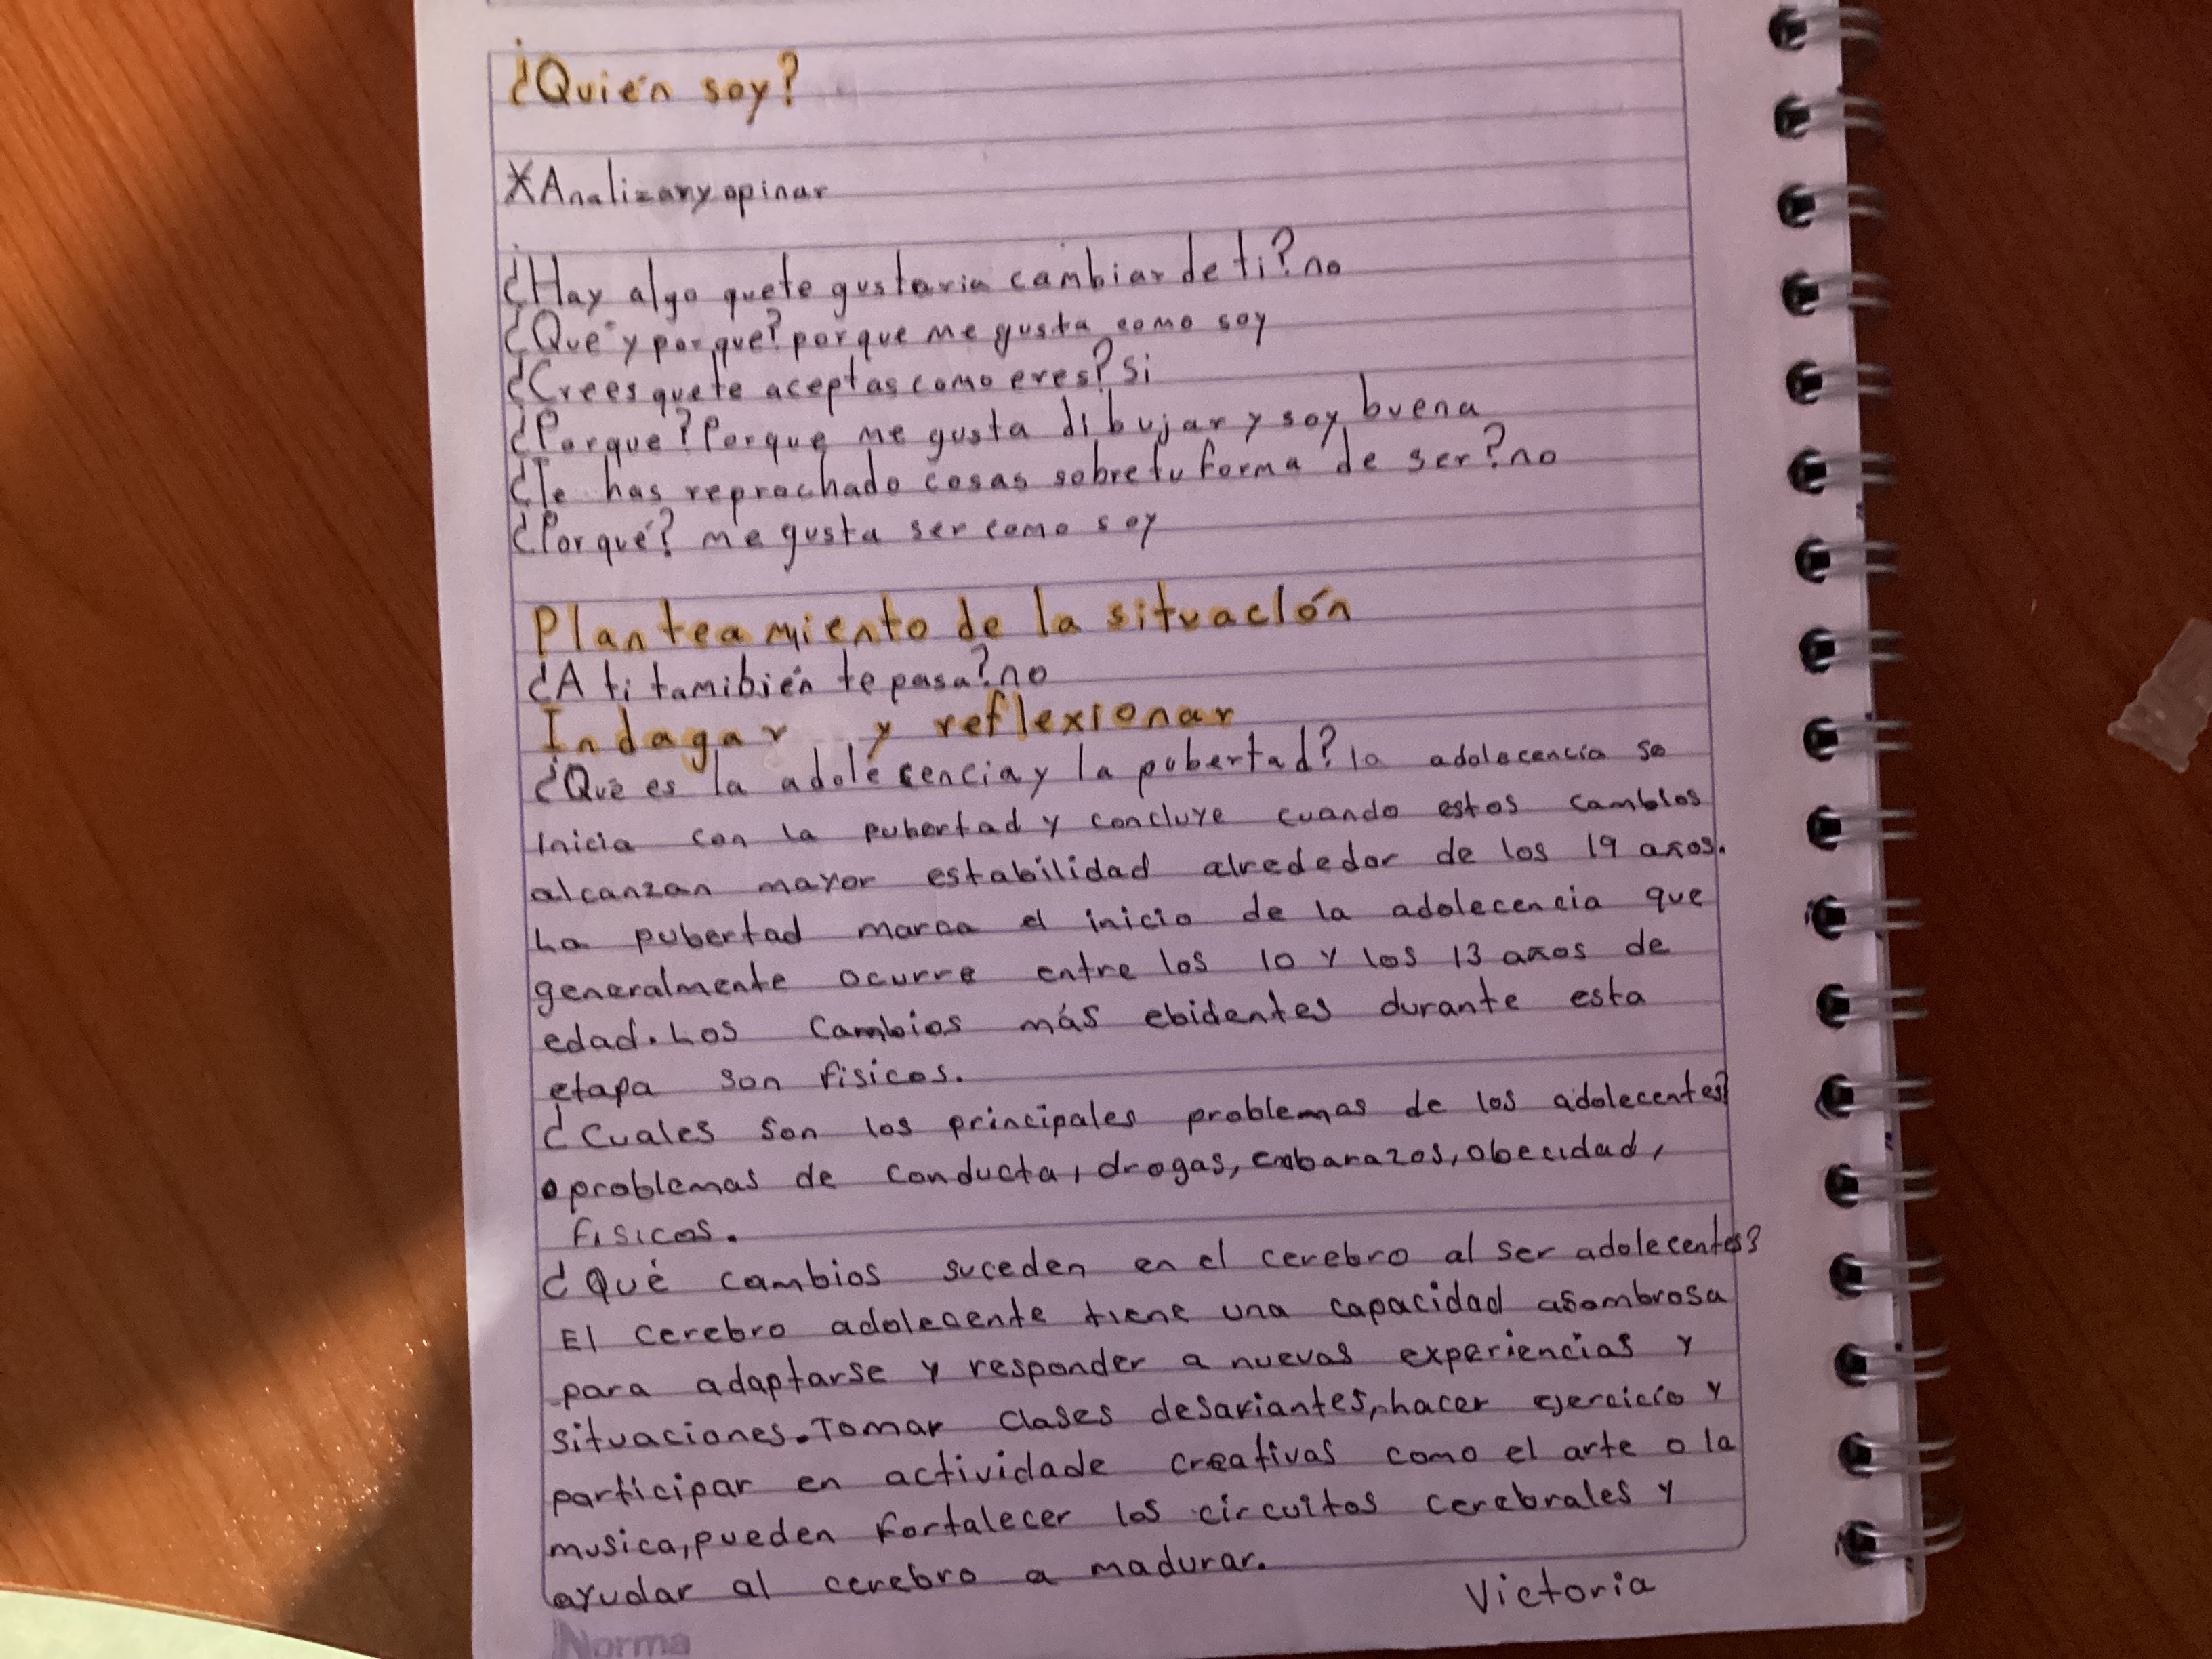 ¿Quién soy?
*Analizar y opinar
¿Hay algo que te gustaria cambiar de ti? no
¿Qué y por que? porque me gusta como soy
¿Crees que te aceptas como eres? Si
¿Porque? Porque me gusta dibujar y soy buena
¿Te has reprochado cosas sobre tu forma de ser? no
¿Por qué? me gusta ser como soy
Planteamiento de la situación
¿A ti tamibién te pasa? no
Indagar y reflexionar
¿Qué es la adolecencia y la pubertad? la adolecencia se
inicia con la pubertad y concluye cuando estos cambios
alcanzan mayor estabilidad alrededor de los 19 años.
La pubertad marca el inicio de la adolecencia que
generalmente ocurre entre los 10 y los 13 años de
edad. Los cambios más ebidentes durante esta
etapa son fisicos.
¿Cuales son los principales problemas de los adolecentes?
•problemas de conducta, drogas, embarazos, obecidad,
fisicos.
¿Qué cambios suceden en el cerebro al ser adolecentes?
El cerebro adolecente tiene una capacidad asombrosa
para adaptarse y responder a nuevas experiencias y
situaciones. Tomar clases desafiantes, hacer ejercicio y
participar en actividade creativas como el arte o la
musica, pueden fortalecer los circuitos cerebrales y
ayudar al cerebro a madurar.
Victoria
Norma